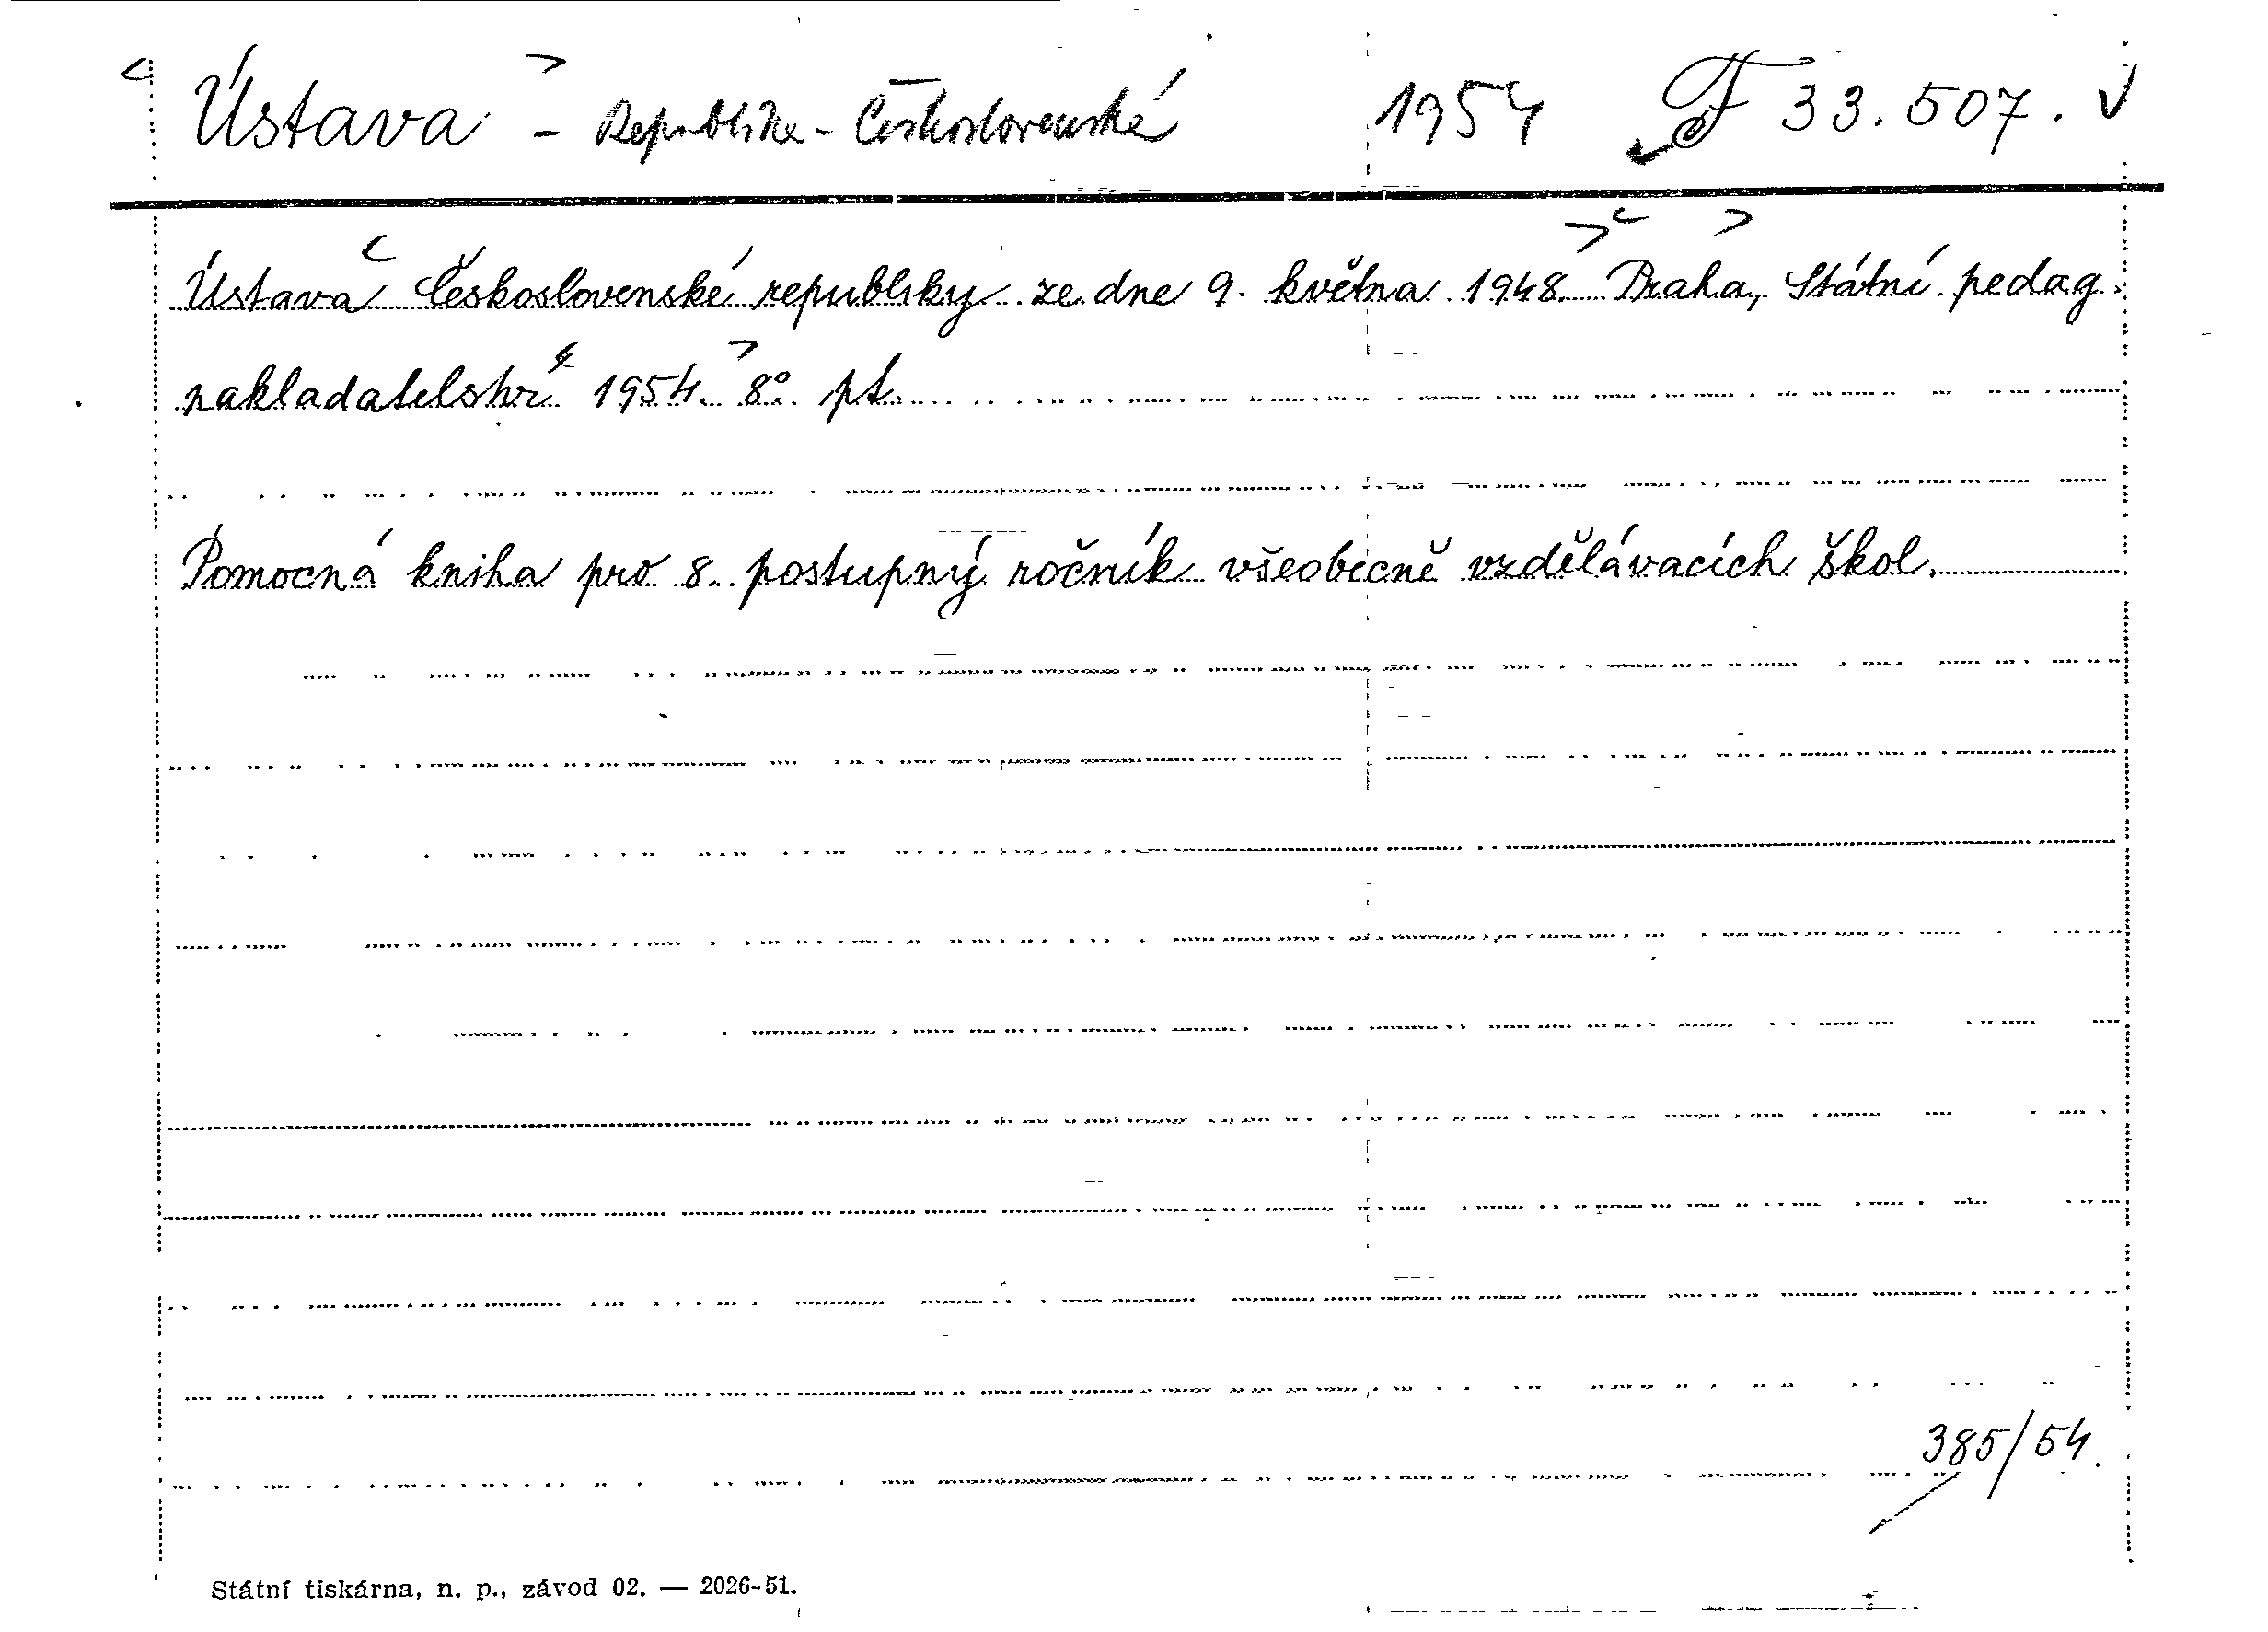 Ústava - Republika - Československá 1954 F 33.507. V
Ústava Československé republiky ze dne 9. května 1948. Praha, Státní pedag.
nakladatelství 1954. 8°. pt.
Pomocná kniha pro 8. postupný ročník všeobecně vzdělávacích škol.
385/54.
Státní tiskárna, n. p., závod 02. — 2026-51.